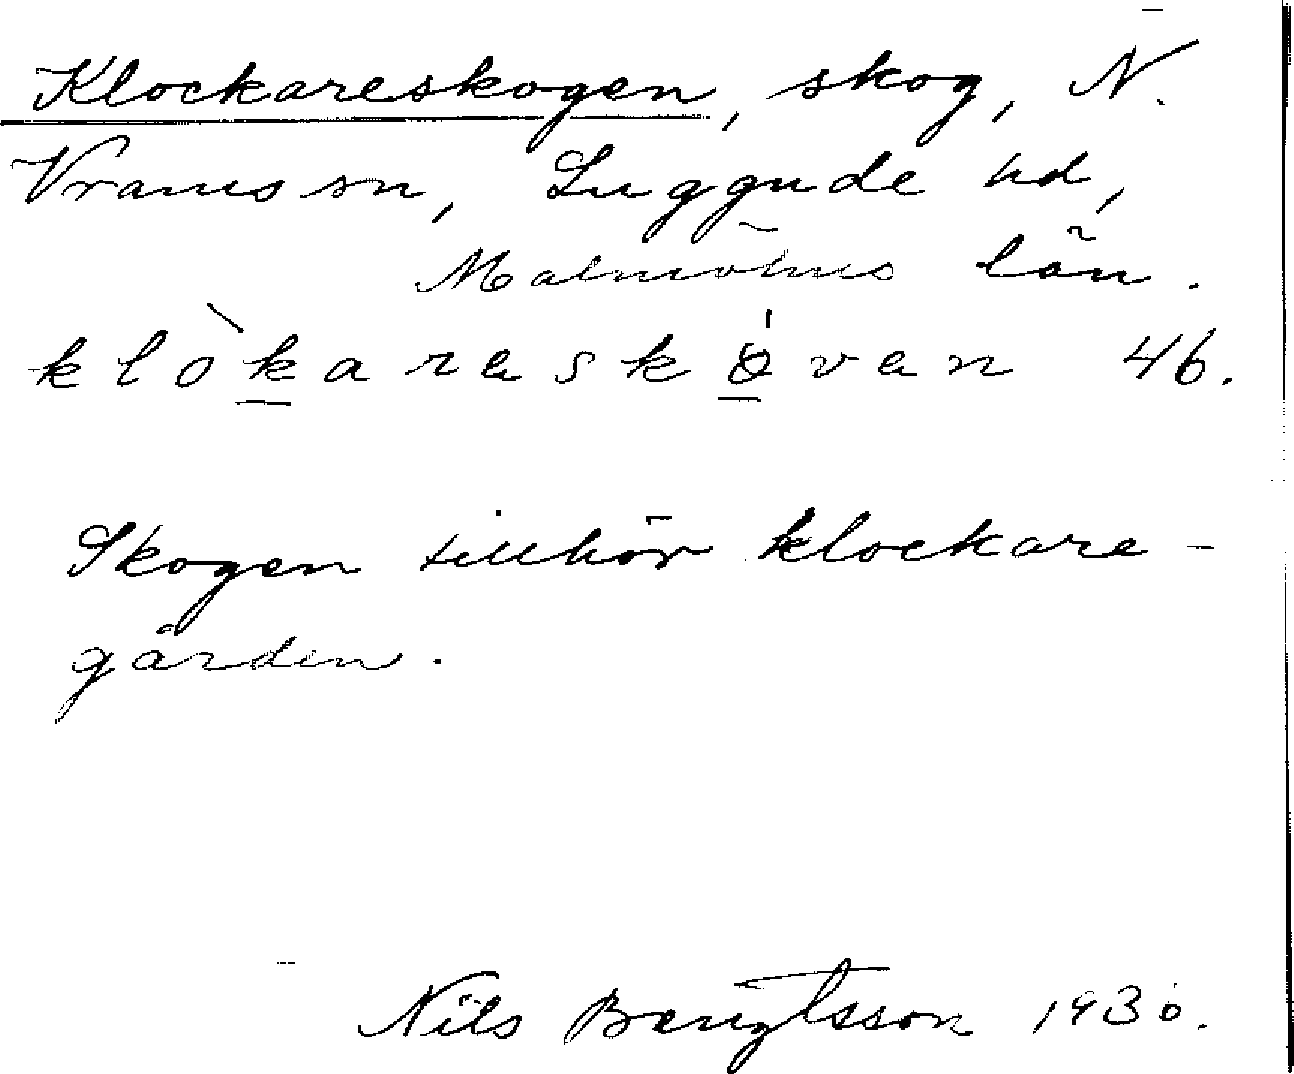 Klockareskogen, skog, N.
Vrams sn, Luggude hd,
Malmöhus län.
klòkaraskóvan 46.
Skogen tillhör klockare-
gården.
Nils Bengtsson 1930.